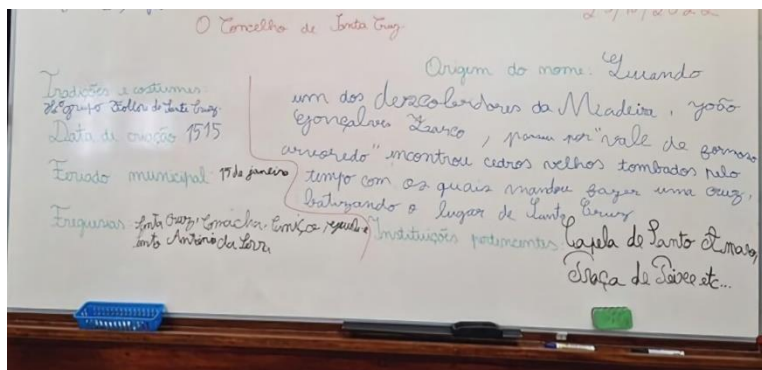 O Concelho de Santa Cruz
Tradições e costumes:
Há grupo Folclore de Santa Cruz.
Data de criação 1515
Feriado municipal 15 de janeiro
Freguesias Santa Cruz, Camacha, Caniço,
Santo António da Serra
Origem do nome: "Quando
um dos descobridores da Madeira, João
Gonçalves Zarco, passou por "vale de formoso
arvoredo" incontrou cedros velhos tombados pelo
tempo com os quais mandou fazer uma cruz,
batizando o lugar de Santa Cruz
Instituições pertencentes: Capela de Santo Amaro,
Praça de Peixe etc...